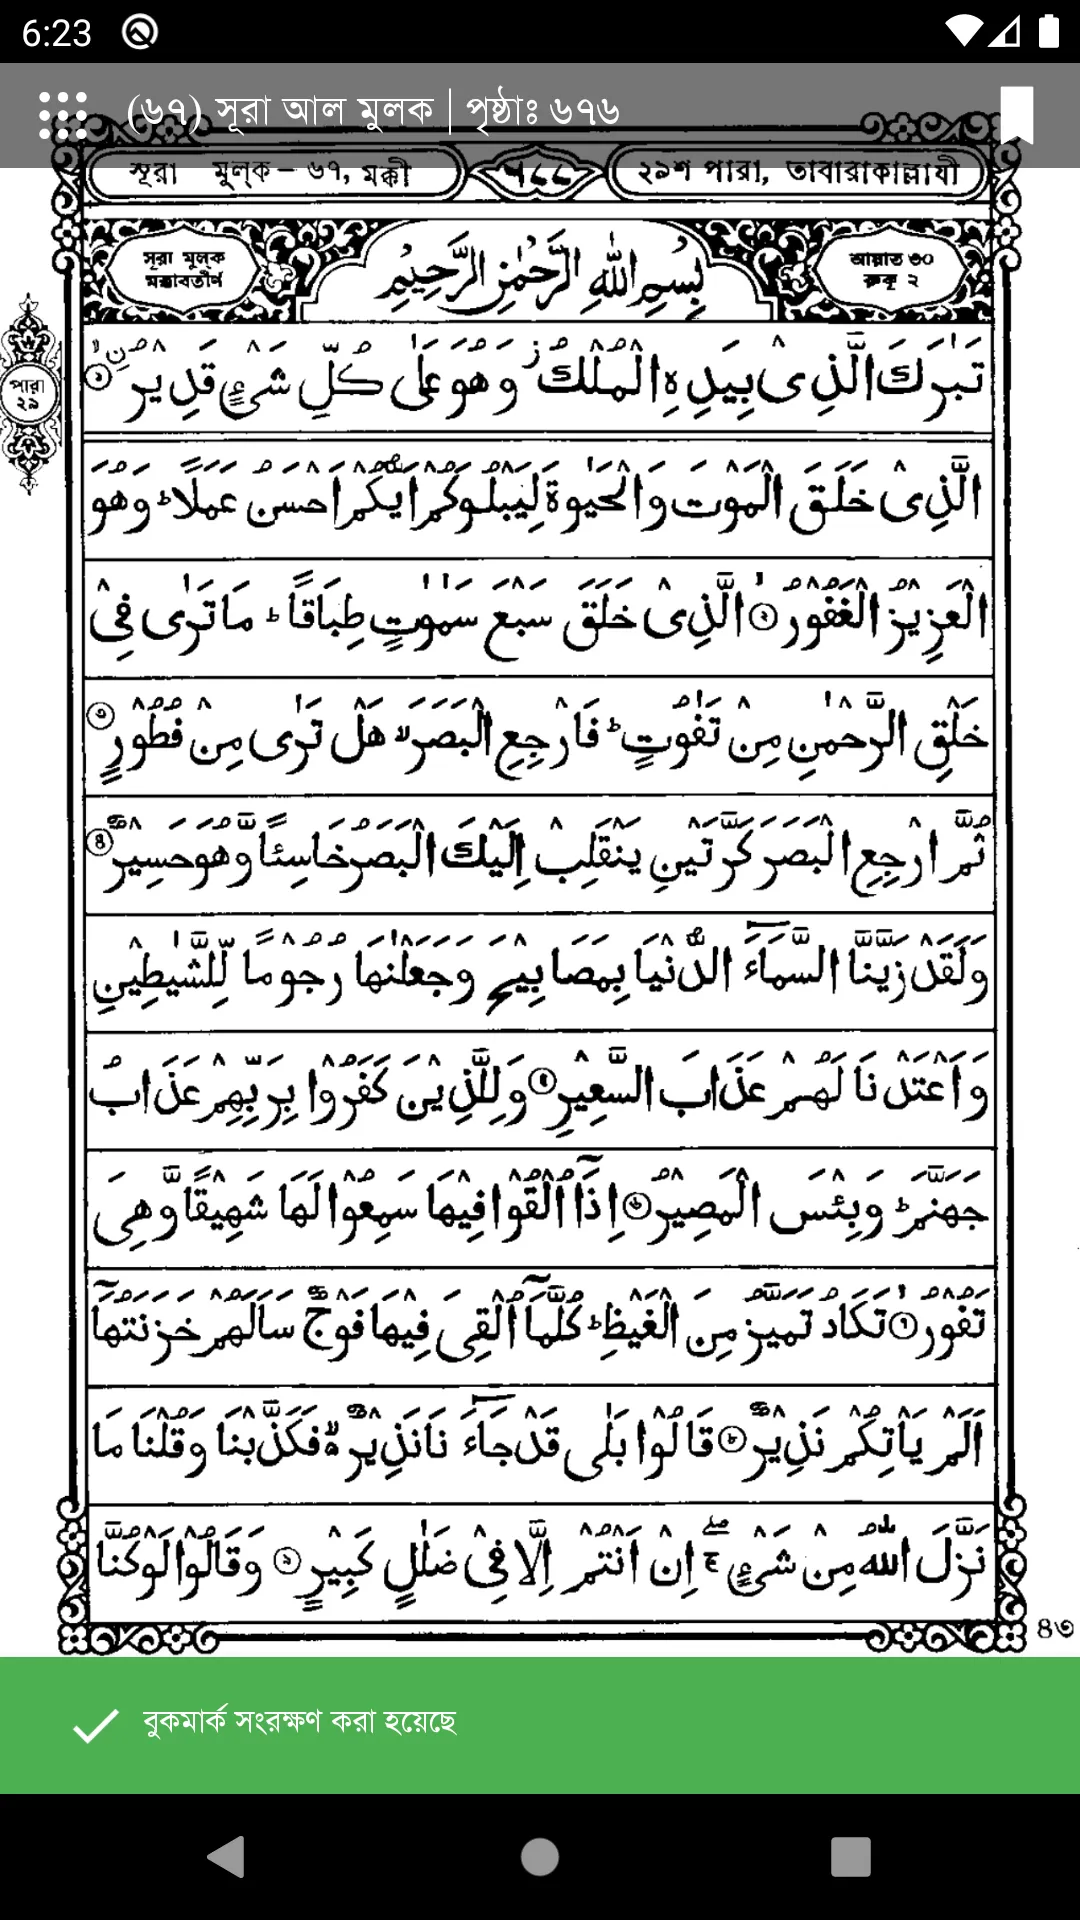 6:23
(৬৭) সূরা আল মুলক | পৃষ্ঠাঃ ৬৭৬
সূরা মুল্ক – ৬৭, মক্কী
২৯শ পারা, তাবারাকাল্লাযী
সূরা মুলক
মক্কাবতীর্ণ
بِسْمِ اللّٰهِ الرَّحْمٰنِ الرَّحِيْمِ
আয়াত ৩০
রুকূ ২
পারা
২৯
تَبٰرَكَ الَّذِىْ بِيَدِهِ الْمُلْكُ ز وَهُوَ عَلٰى كُلِّ شَىْءٍ قَدِيْرُ ۨ ۙ ১
الَّذِىْ خَلَقَ الْمَوْتَ وَالْحَيٰوةَ لِيَبْلُوَكُمْ اَيُّكُمْ اَحْسَنُ عَمَلًا ؕ وَهُوَ
الْعَزِيْزُ الْغَفُوْرُ ۙ ২ الَّذِىْ خَلَقَ سَبْعَ سَمٰوٰتٍ طِبَاقًا ؕ مَا تَرٰى فِىْ
خَلْقِ الرَّحْمٰنِ مِنْ تَفٰوُتٍ ؕ فَارْجِعِ الْبَصَرَ ۙ هَلْ تَرٰى مِنْ فُطُوْرٍ ৩
ثُمَّ ارْجِعِ الْبَصَرَ كَرَّتَيْنِ يَنْقَلِبْ اِلَيْكَ الْبَصَرُ خَاسِئًا وَّهُوَ حَسِيْرٌ ৪
وَلَقَدْ زَيَّنَّا السَّمَآءَ الدُّنْيَا بِمَصَابِيْحَ وَجَعَلْنٰهَا رُجُوْمًا لِّلشَّيٰطِيْنِ
وَاَعْتَدْنَا لَهُمْ عَذَابَ السَّعِيْرِ ৫ وَلِلَّذِيْنَ كَفَرُوْا بِرَبِّهِمْ عَذَابُ
جَهَنَّمَ ؕ وَبِئْسَ الْمَصِيْرُ ৬ اِذَآ اُلْقُوْا فِيْهَا سَمِعُوْا لَهَا شَهِيْقًا وَّهِىَ
تَفُوْرُ ۙ ৭ تَكَادُ تَمَيَّزُ مِنَ الْغَيْظِ ؕ كُلَّمَآ اُلْقِىَ فِيْهَا فَوْجٌ سَاَلَهُمْ خَزَنَتُهَآ
اَلَمْ يَاْتِكُمْ نَذِيْرٌ ৮ قَالُوْا بَلٰى قَدْ جَآءَنَا نَذِيْرٌ ۙ۬ فَكَذَّبْنَا وَقُلْنَا مَا
نَزَّلَ اللّٰهُ مِنْ شَىْءٍ ۚۖ اِنْ اَنْتُمْ اِلَّا فِىْ ضَلٰلٍ كَبِيْرٍ ৯ وَقَالُوْا لَوْ كُنَّا
৪৩
বুকমার্ক সংরক্ষণ করা হয়েছে